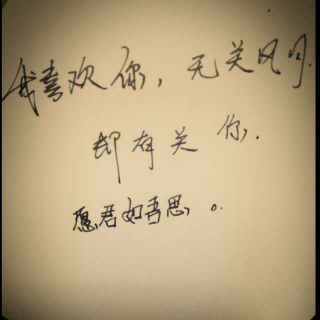 我喜欢你，无关风月.
却有关你.
愿君如吾思，。